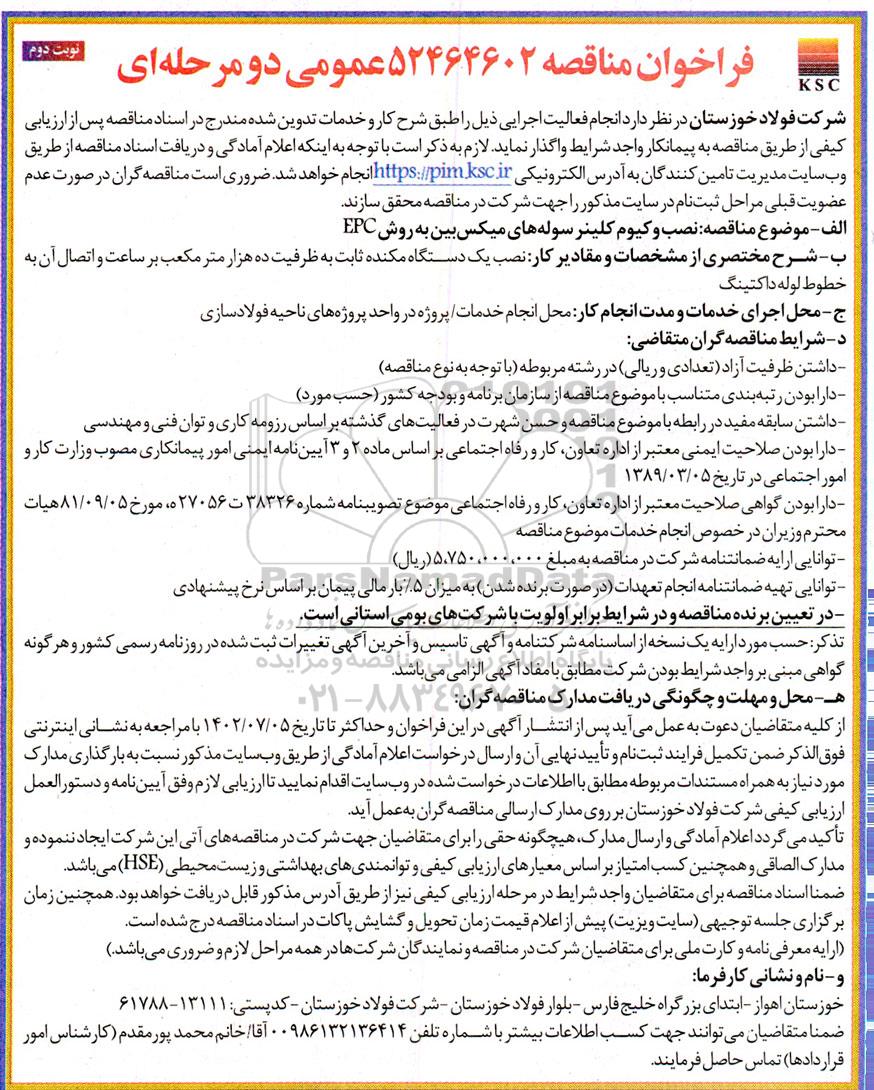 نوبت دوم
فراخوان مناقصه ۵۲۴۶۴۶۰۲ عمومی دو مرحله‌ای
KSC
شرکت فولاد خوزستان در نظر دارد انجام فعالیت اجرایی ذیل را طبق شرح کار و خدمات تدوین شده مندرج در اسناد مناقصه پس از ارزیابی
کیفی از طریق مناقصه به پیمانکار واجد شرایط واگذار نماید. لازم به ذکر است با توجه به اینکه اعلام آمادگی و دریافت اسناد مناقصه از طریق
وب‌سایت مدیریت تامین کنندگان به آدرس الکترونیکی https://pim.ksc.ir انجام خواهد شد. ضروری است مناقصه‌گران در صورت عدم
عضویت قبلی مراحل ثبت‌نام در سایت مذکور را جهت شرکت در مناقصه محقق سازند.
الف- موضوع مناقصه: نصب وکیوم کلینر سوله‌های میکس بین به روش EPC
ب- شرح مختصری از مشخصات و مقادیر کار: نصب یک دستگاه مکنده ثابت به ظرفیت ده هزار متر مکعب بر ساعت و اتصال آن به
خطوط لوله داکتینگ
ج- محل اجرای خدمات و مدت انجام کار: محل انجام خدمات/ پروژه در واحد پروژه‌های ناحیه فولادسازی
د- شرایط مناقصه‌گران متقاضی:
-داشتن ظرفیت آزاد (تعدادی و ریالی) در رشته مربوطه (با توجه به نوع مناقصه)
-دارا بودن رتبه‌بندی متناسب با موضوع مناقصه از سازمان برنامه و بودجه کشور (حسب مورد)
-داشتن سابقه مفید در رابطه با موضوع مناقصه و حسن شهرت در فعالیت‌های گذشته بر اساس رزومه کاری و توان فنی و مهندسی
-دارا بودن صلاحیت ایمنی معتبر از اداره تعاون، کار و رفاه اجتماعی بر اساس ماده ۲ و ۳ آیین‌نامه ایمنی امور پیمانکاری مصوب وزارت کار و
امور اجتماعی در تاریخ ۱۳۸۹/۰۳/۰۵
-دارا بودن گواهی صلاحیت معتبر از اداره تعاون، کار و رفاه اجتماعی موضوع تصویبنامه شماره ۳۸۳۲۶ ت ۲۷۰۵۶ه، مورخ ۸۱/۰۹/۰۵ هیات
محترم وزیران در خصوص انجام خدمات موضوع مناقصه
-توانایی ارایه ضمانتنامه شرکت در مناقصه به مبلغ ۵،۷۵۰،۰۰۰،۰۰۰ (ریال)
-توانایی تهیه ضمانتنامه انجام تعهدات (در صورت برنده شدن) به میزان ۵٪ بار مالی پیمان بر اساس نرخ پیشنهادی
-در تعیین برنده مناقصه و در شرایط برابر اولویت با شرکت‌های بومی استانی است.
تذکر: حسب مورد ارایه یک نسخه از اساسنامه شرکتنامه و آگهی تاسیس و آخرین آگهی تغییرات ثبت شده در روزنامه رسمی کشور و هر گونه
گواهی مبنی بر واجد شرایط بودن شرکت مطابق با مفاد آگهی الزامی می‌باشد.
هـ- محل و مهلت و چگونگی دریافت مدارک مناقصه گران:
از کلیه متقاضیان دعوت به عمل می‌آید پس از انتشار آگهی در این فراخوان و حداکثر تا تاریخ ۱۴۰۲/۰۷/۰۵ با مراجعه به نشانی اینترنتی
فوق‌الذکر ضمن تکمیل فرایند ثبت‌نام و تأیید نهایی آن و ارسال درخواست اعلام آمادگی از طریق وب‌سایت مذکور نسبت به بارگذاری مدارک
مورد نیاز به همراه مستندات مربوطه مطابق با اطلاعات درخواست شده در وب‌سایت اقدام نمایید تا ارزیابی لازم وفق آیین‌نامه و دستورالعمل
ارزیابی کیفی شرکت فولاد خوزستان بر روی مدارک ارسالی مناقصه‌گران به‌عمل آید.
تأکید می گردد اعلام آمادگی و ارسال مدارک، هیچگونه حقی را برای متقاضیان جهت شرکت در مناقصه‌های آتی این شرکت ایجاد ننموده و
مدارک الصاقی و همچنین کسب امتیاز بر اساس معیارهای ارزیابی کیفی و توانمندی‌های بهداشتی و زیست‌محیطی (HSE) می‌باشد.
ضمنا اسناد مناقصه برای متقاضیان واجد شرایط در مرحله ارزیابی کیفی نیز از طریق آدرس مذکور قابل دریافت خواهد بود. همچنین زمان
برگزاری جلسه توجیهی (سایت ویزیت) پیش از اعلام قیمت زمان تحویل و گشایش پاکات در اسناد مناقصه درج شده است.
(ارایه معرفی‌نامه و کارت ملی برای متقاضیان شرکت در مناقصه و نمایندگان شرکت‌ها در همه مراحل لازم و ضروری می‌باشد.)
و- نام و نشانی کارفرما:
خوزستان اهواز - ابتدای بزرگراه خلیج فارس - بلوار فولاد خوزستان - شرکت فولاد خوزستان - کدپستی: ۱۳۱۱۱-۶۱۷۸۸
ضمنا متقاضیان می‌توانند جهت کسب اطلاعات بیشتر با شماره تلفن ۰۰۹۸۶۱۳۲۱۳۶۴۱۴ آقا/خانم محمد پورمقدم (کارشناس امور
قراردادها) تماس حاصل فرمایند.
ParsNamadData
پایگاه اطلاع رسانی مناقصه و مزایده